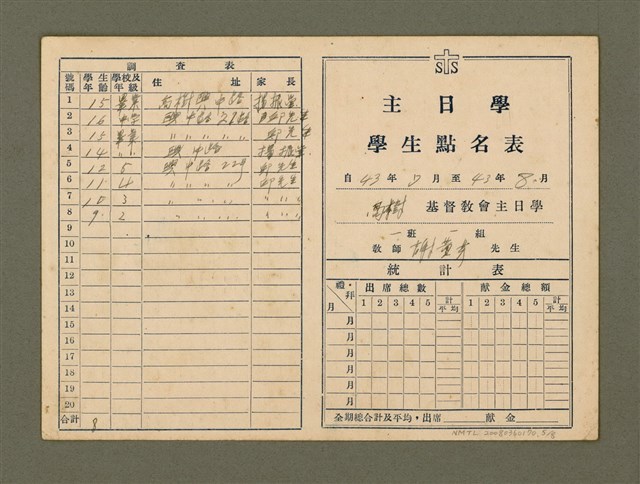 調查表
號碼 學生年齡 學校及年級 住址 家長
1 15 畢業 高樹興中路
2 16 中学 興中路
3 15 畢業 〃 〃 〃 邱先生
4 14 〃 〃 興中路
5 12 5 興中路 22号 邱先生
6 11 4 〃 〃 〃 〃 邱先生
7 10 3 〃 〃 〃 〃 〃 〃 〃
8 9 2 〃 〃 〃 〃 〃 〃 〃
9
10
11
12
13
14
15
16
17
18
19
20
合計 8
S S
主日學
學生點名表
自43年 月至43年8月
高樹 基督教會主日學
一班一組
教師 先生
統計表
禮拜 月 出席總數 獻金總額
1 2 3 4 5 計 平均 1 2 3 4 5 計 平均
月
月
月
月
月
月
全期總合計及平均，出席 獻金